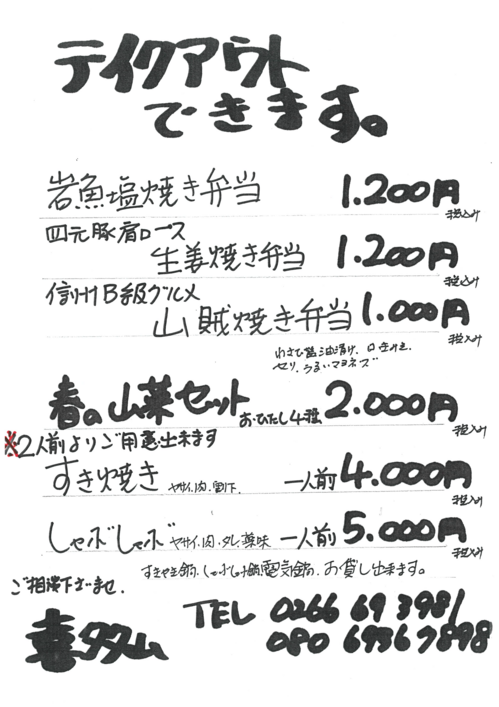 テイクアウト
できます。
岩魚塩焼き弁当 1.200円
税込み
四元豚肩ロース
生姜焼き弁当 1.200円
税込み
信州B級グルメ
山賊焼き弁当 1.000円
税込み
わさび醤油漬け、
セリ、うるいマヨネーズ
春の山菜セット おひたし4種 2.000円
税込み
※2人前よりご用意出来ます
すき焼き ヤサイ、肉、割下、 一人前 4.000円
税込み
しゃぶしゃぶ ヤサイ、肉、タレ、薬味 一人前 5.000円
税込み
すきやき鍋、しゃぶしゃぶ鍋、電気鍋、お貸し出来ます。
ご相談下さいませ。
TEL 0266 69 3981
喜多山 080 6936 7898